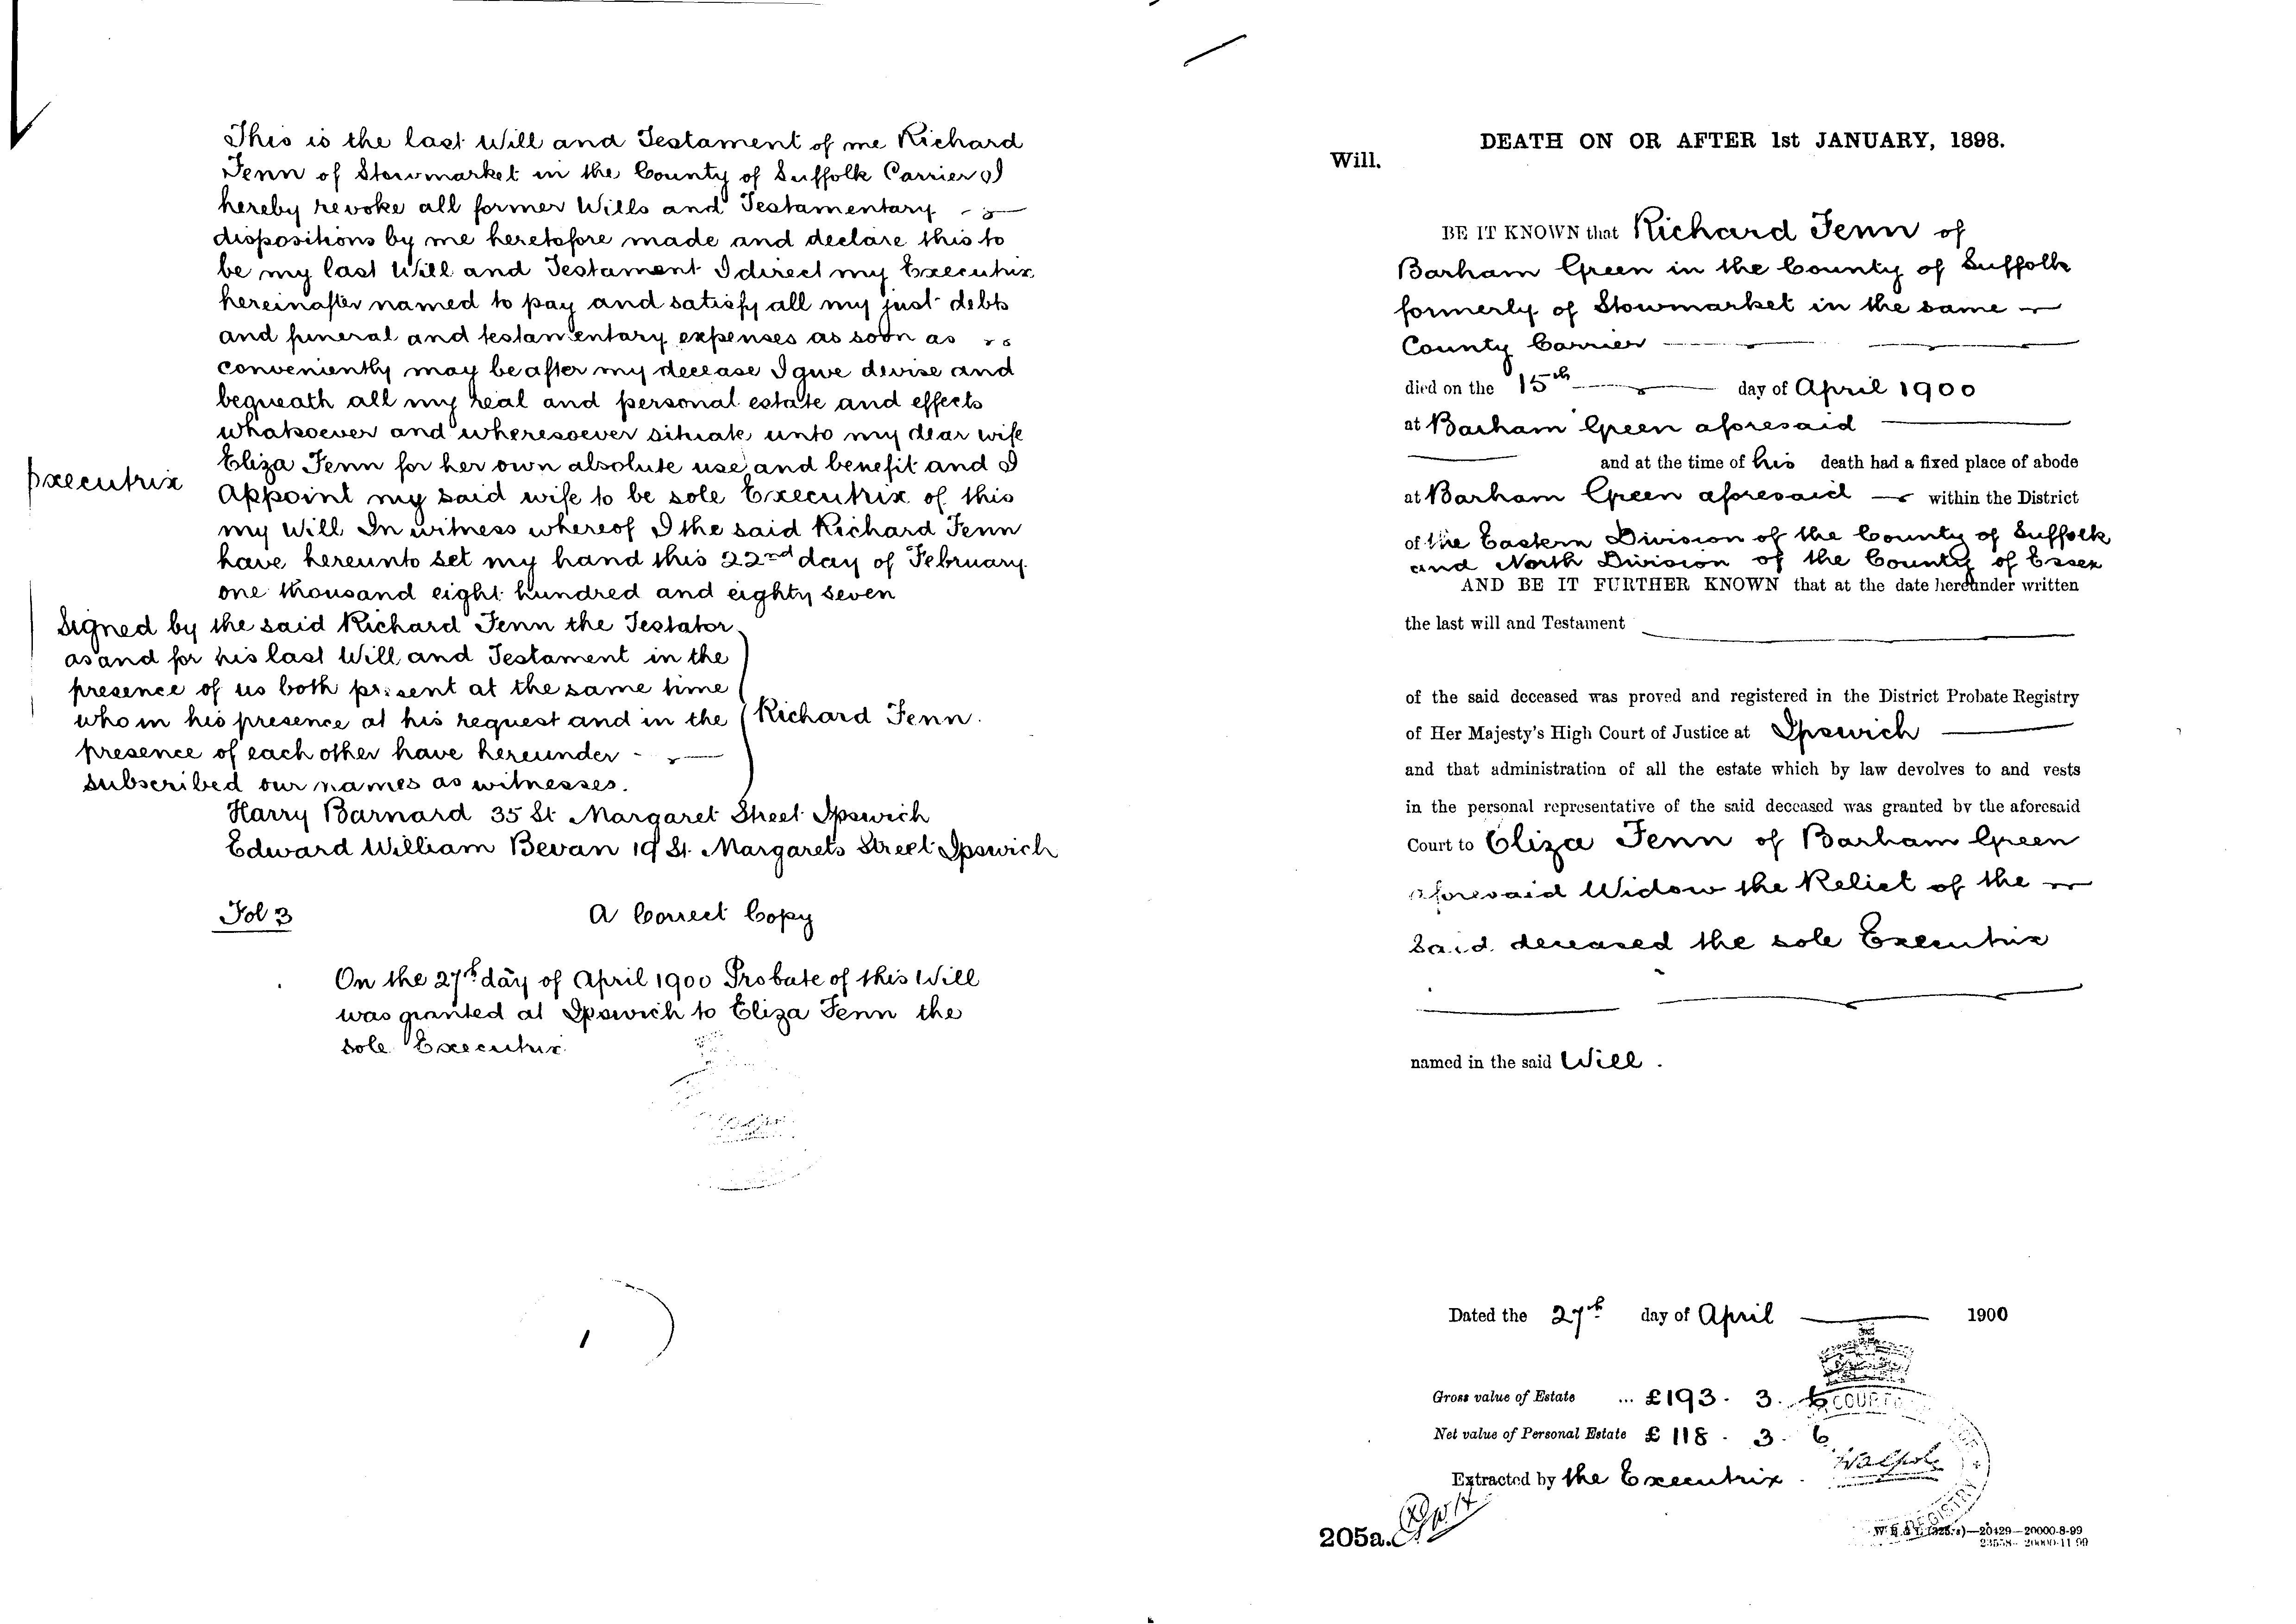 This is the last Will and Testament of me Richard
Fenn of Stowmarket in the County of Suffolk Carrier I
hereby revoke all former Wills and Testamentary
dispositions by me heretofore made and declare this to
be my last Will and Testament I direct my Executrix
hereinafter named to pay and satisfy all my just debts
and funeral and testamentary expenses as soon as
conveniently may be after my decease I give devise and
bequeath all my real and personal estate and effects
whatsoever and wheresoever situate unto my dear wife
Eliza Fenn for her own absolute use and benefit and I
Executrix
Appoint my said wife to be sole Executrix of this
my Will In witness whereof I the said Richard Fenn
have hereunto set my hand this 22nd day of February
one thousand eight hundred and eighty seven
Signed by the said Richard Fenn the Testator
as and for his last Will and Testament in the
presence of us both present at the same time
who in his presence at his request and in the
Richard Fenn.
presence of each other have hereunder
subscribed our names as witnesses.
Harry Barnard 35 St Margaret Street Ipswich
Edward William Bevan 19 St. Margarets Street Ipswich
Fol 3
A Correct Copy
On the 27th day of April 1900 Probate of this Will
was granted at Ipswich to Eliza Fenn the
sole Executrix.
DEATH ON OR AFTER 1st JANUARY, 1898.
Will.
BE IT KNOWN that Richard Fenn of
Barham Green in the County of Suffolk
formerly of Stowmarket in the same
County Carrier
died on the 15th day of April 1900
at Barham Green aforesaid
and at the time of his death had a fixed place of abode
at Barham Green aforesaid within the District
of the Eastern Division of the County of Suffolk
and North Division of the County of Essex
AND BE IT FURTHER KNOWN that at the date hereunder written
the last will and Testament
of the said deceased was proved and registered in the District Probate Registry
of Her Majesty's High Court of Justice at Ipswich
and that administration of all the estate which by law devolves to and vests
in the personal representative of the said deceased was granted by the aforesaid
Court to Eliza Fenn of Barham Green
aforesaid Widow the Relict of the
said deceased the sole Executrix
named in the said Will.
Dated the 27th day of April 1900
Gross value of Estate ... £193. 3. 6
COURT
Net value of Personal Estate £118. 3. 6
Extracted by the Executrix.
REGISTRY
205a.
20429—20000-8-99